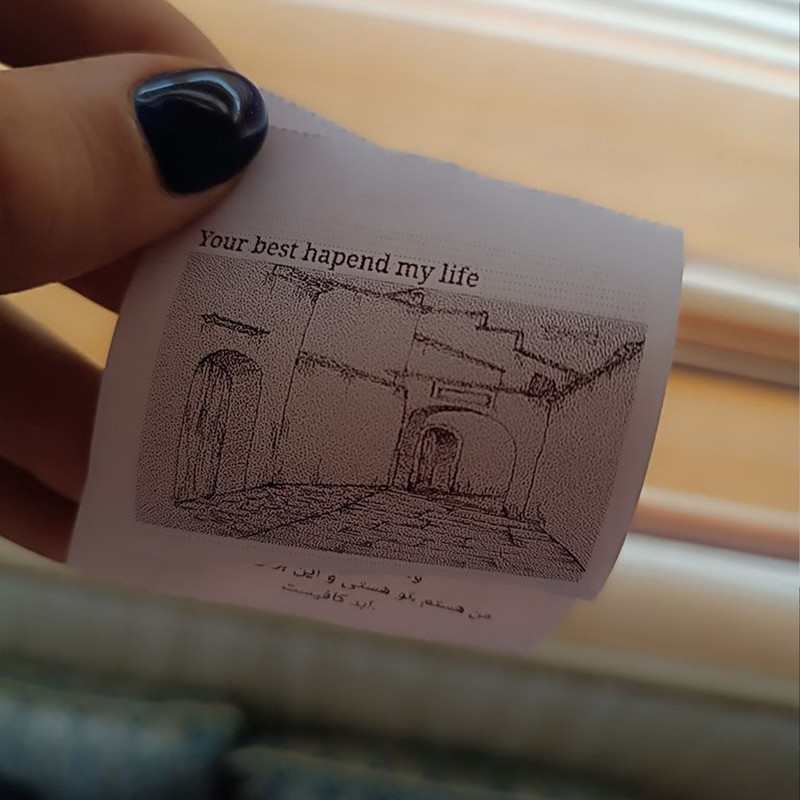 Your best hapend my life
من هستم تو هستی و این
ابد کافیست